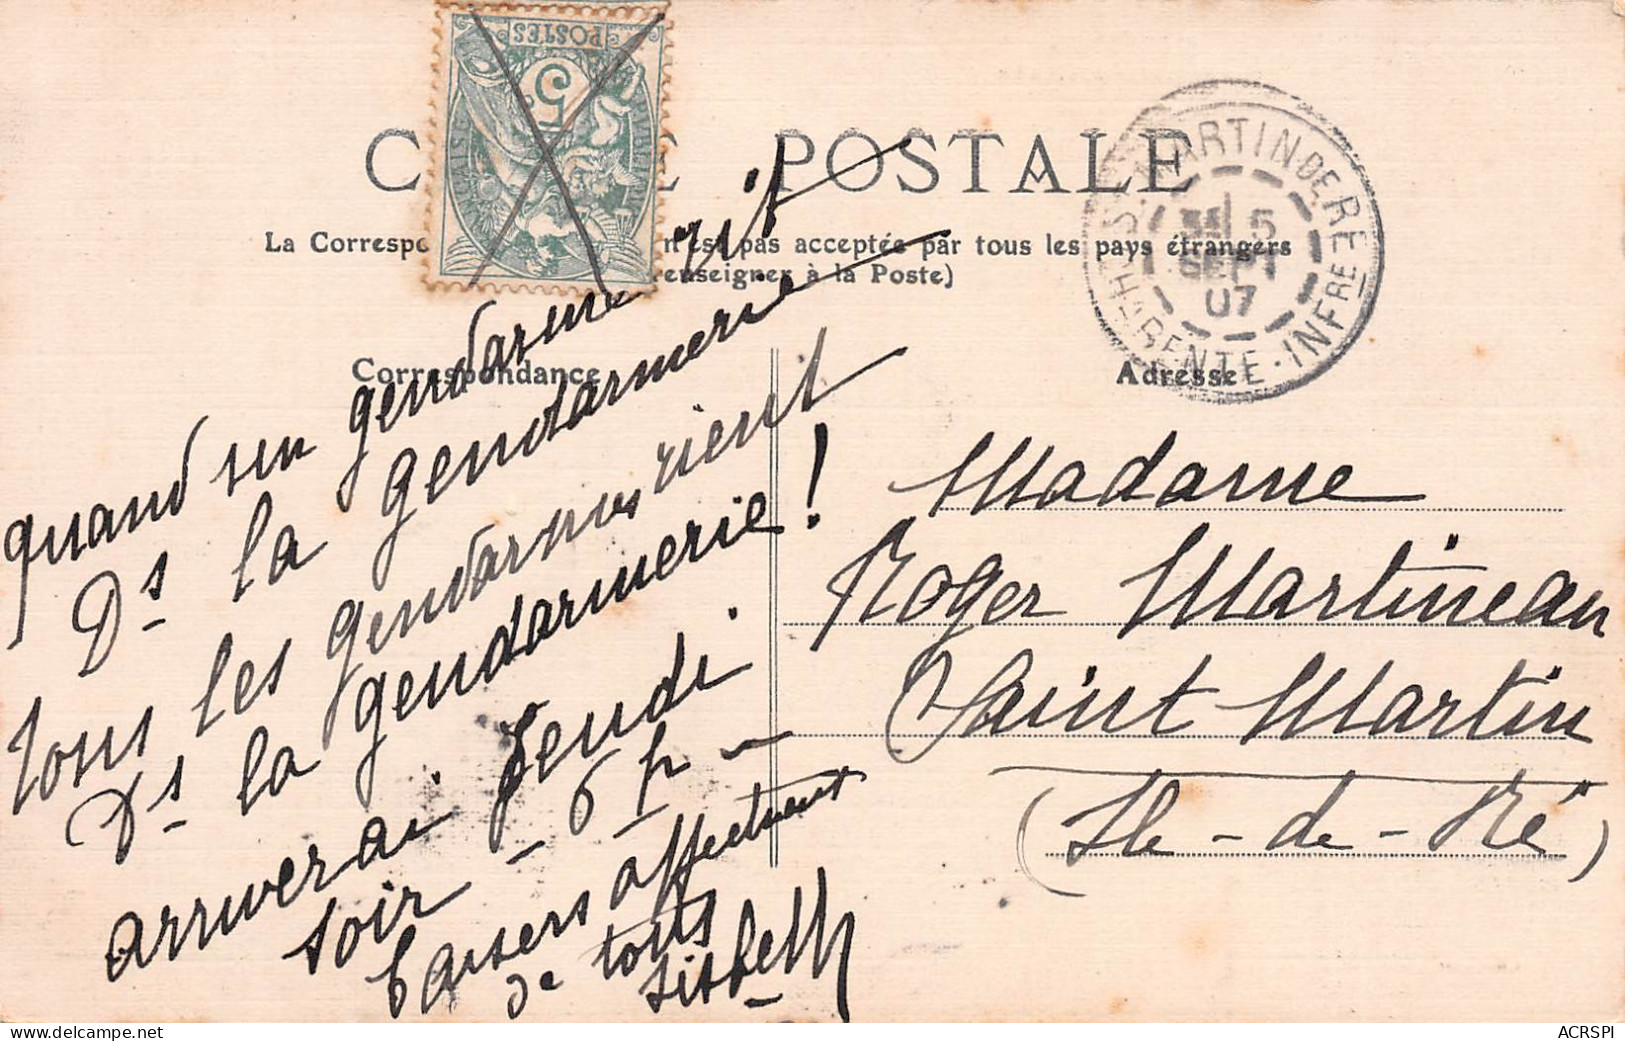 POSTES
5c
CARTE POSTALE
La Correspo n'est pas acceptée par tous les pays étrangers
enseigner à la Poste)
Correspondance
Adresse
ST MARTIN-DE-RÉ
5
SEPT
07
CHARENTE-INFRE
quand un gendarme rit
Ds la gendarmerie
tous les gendarmes rient
Ds la gendarmerie!
arriverai Jeudi
soir - 6 h -
baisers affectueux
de tous
Madame
Roger Martineau
Saint Martin
(Ile-de-Ré)
ACRSPI